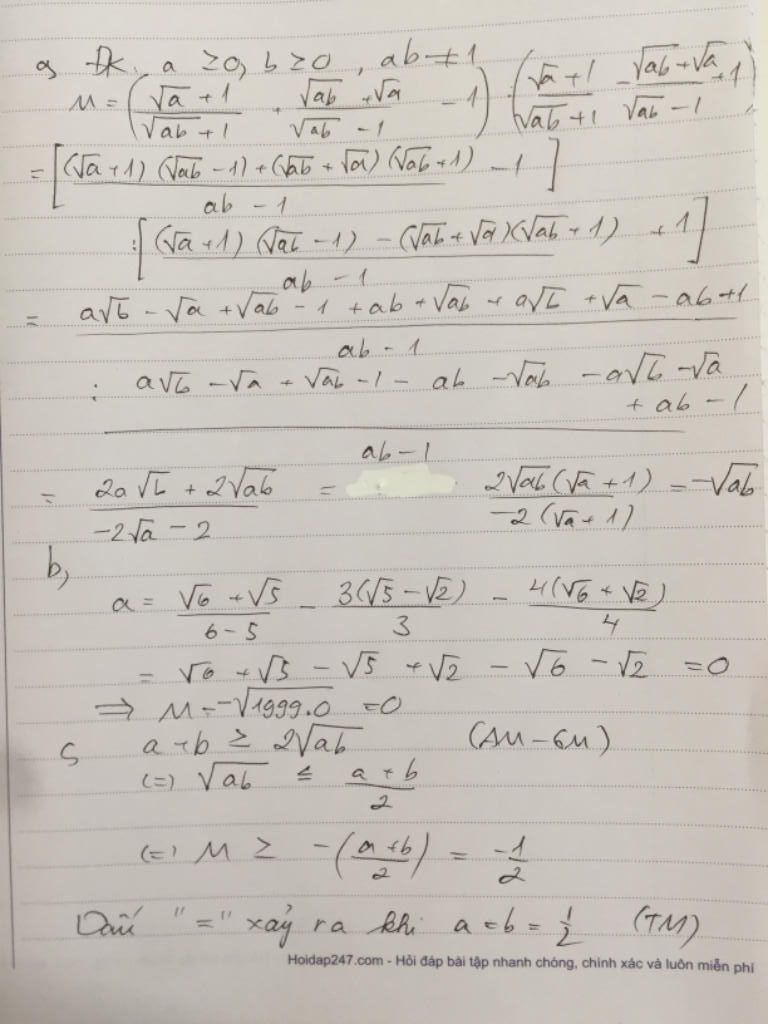 a, Đk. a ≥ 0, b ≥ 0, ab ≠ 1
M = ((√a + 1)/(√ab + 1) + (√ab + √a)/(√ab - 1) - 1) : ((√a + 1)/(√ab + 1) - (√ab + √a)/(√ab - 1) + 1)
= [((√a + 1)(√ab - 1) + (√ab + √a)(√ab + 1))/(ab - 1) - 1]
: [((√a + 1)(√ab - 1) - (√ab + √a)(√ab + 1))/(ab - 1) + 1]
= (a√b - √a + √ab - 1 + ab + √ab + a√b + √a - ab + 1)/(ab - 1)
: (a√b - √a + √ab - 1 - ab - √ab - a√b - √a + ab - 1)/(ab - 1)
= (2a√b + 2√ab)/(-2√a - 2) = (2√ab(√a + 1))/(-2(√a + 1)) = -√ab
b,
a = (√6 + √5)/(6 - 5) - (3(√5 - √2))/3 - (4(√6 + √2))/4
= √6 + √5 - √5 + √2 - √6 - √2 = 0
⇒ M = -√1999.0 = 0
c a + b ≥ 2√ab (AM - GM)
(=) √ab ≤ (a + b)/2
(=) M ≥ -((a + b)/2) = -1/2
Dấu "=" xảy ra khi a = b = 1/2 (TM)
Hoidap247.com - Hỏi đáp bài tập nhanh chóng, chính xác và luôn miễn phí